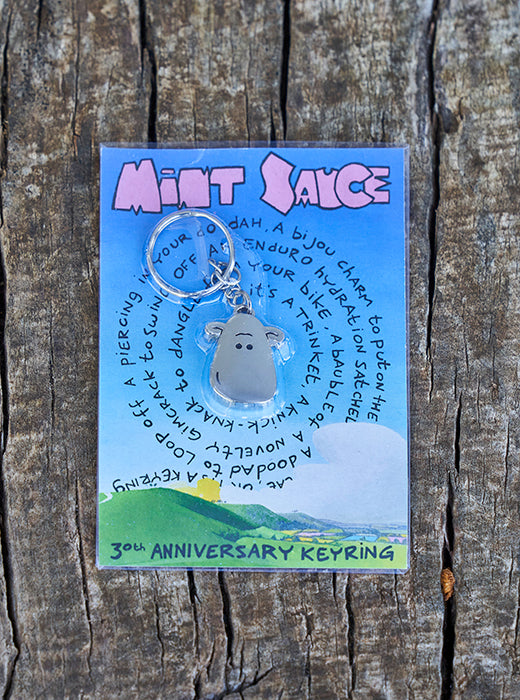 MINT SAUCE
IT'S A TRINKET, A KNICK-KNACK TO DANGLE YOUR BIKE, A BAUBLE OF A NOVELTY GIMCRACK TO SWING OFF AN ENDURO HYDRATION SATCHEL A DOODAD TO LOOP OFF A PIERCING IN YOUR DOO DAH, A BIJOU CHARM TO PUT ON THE
A KEYRING
30th ANNIVERSARY KEYRING